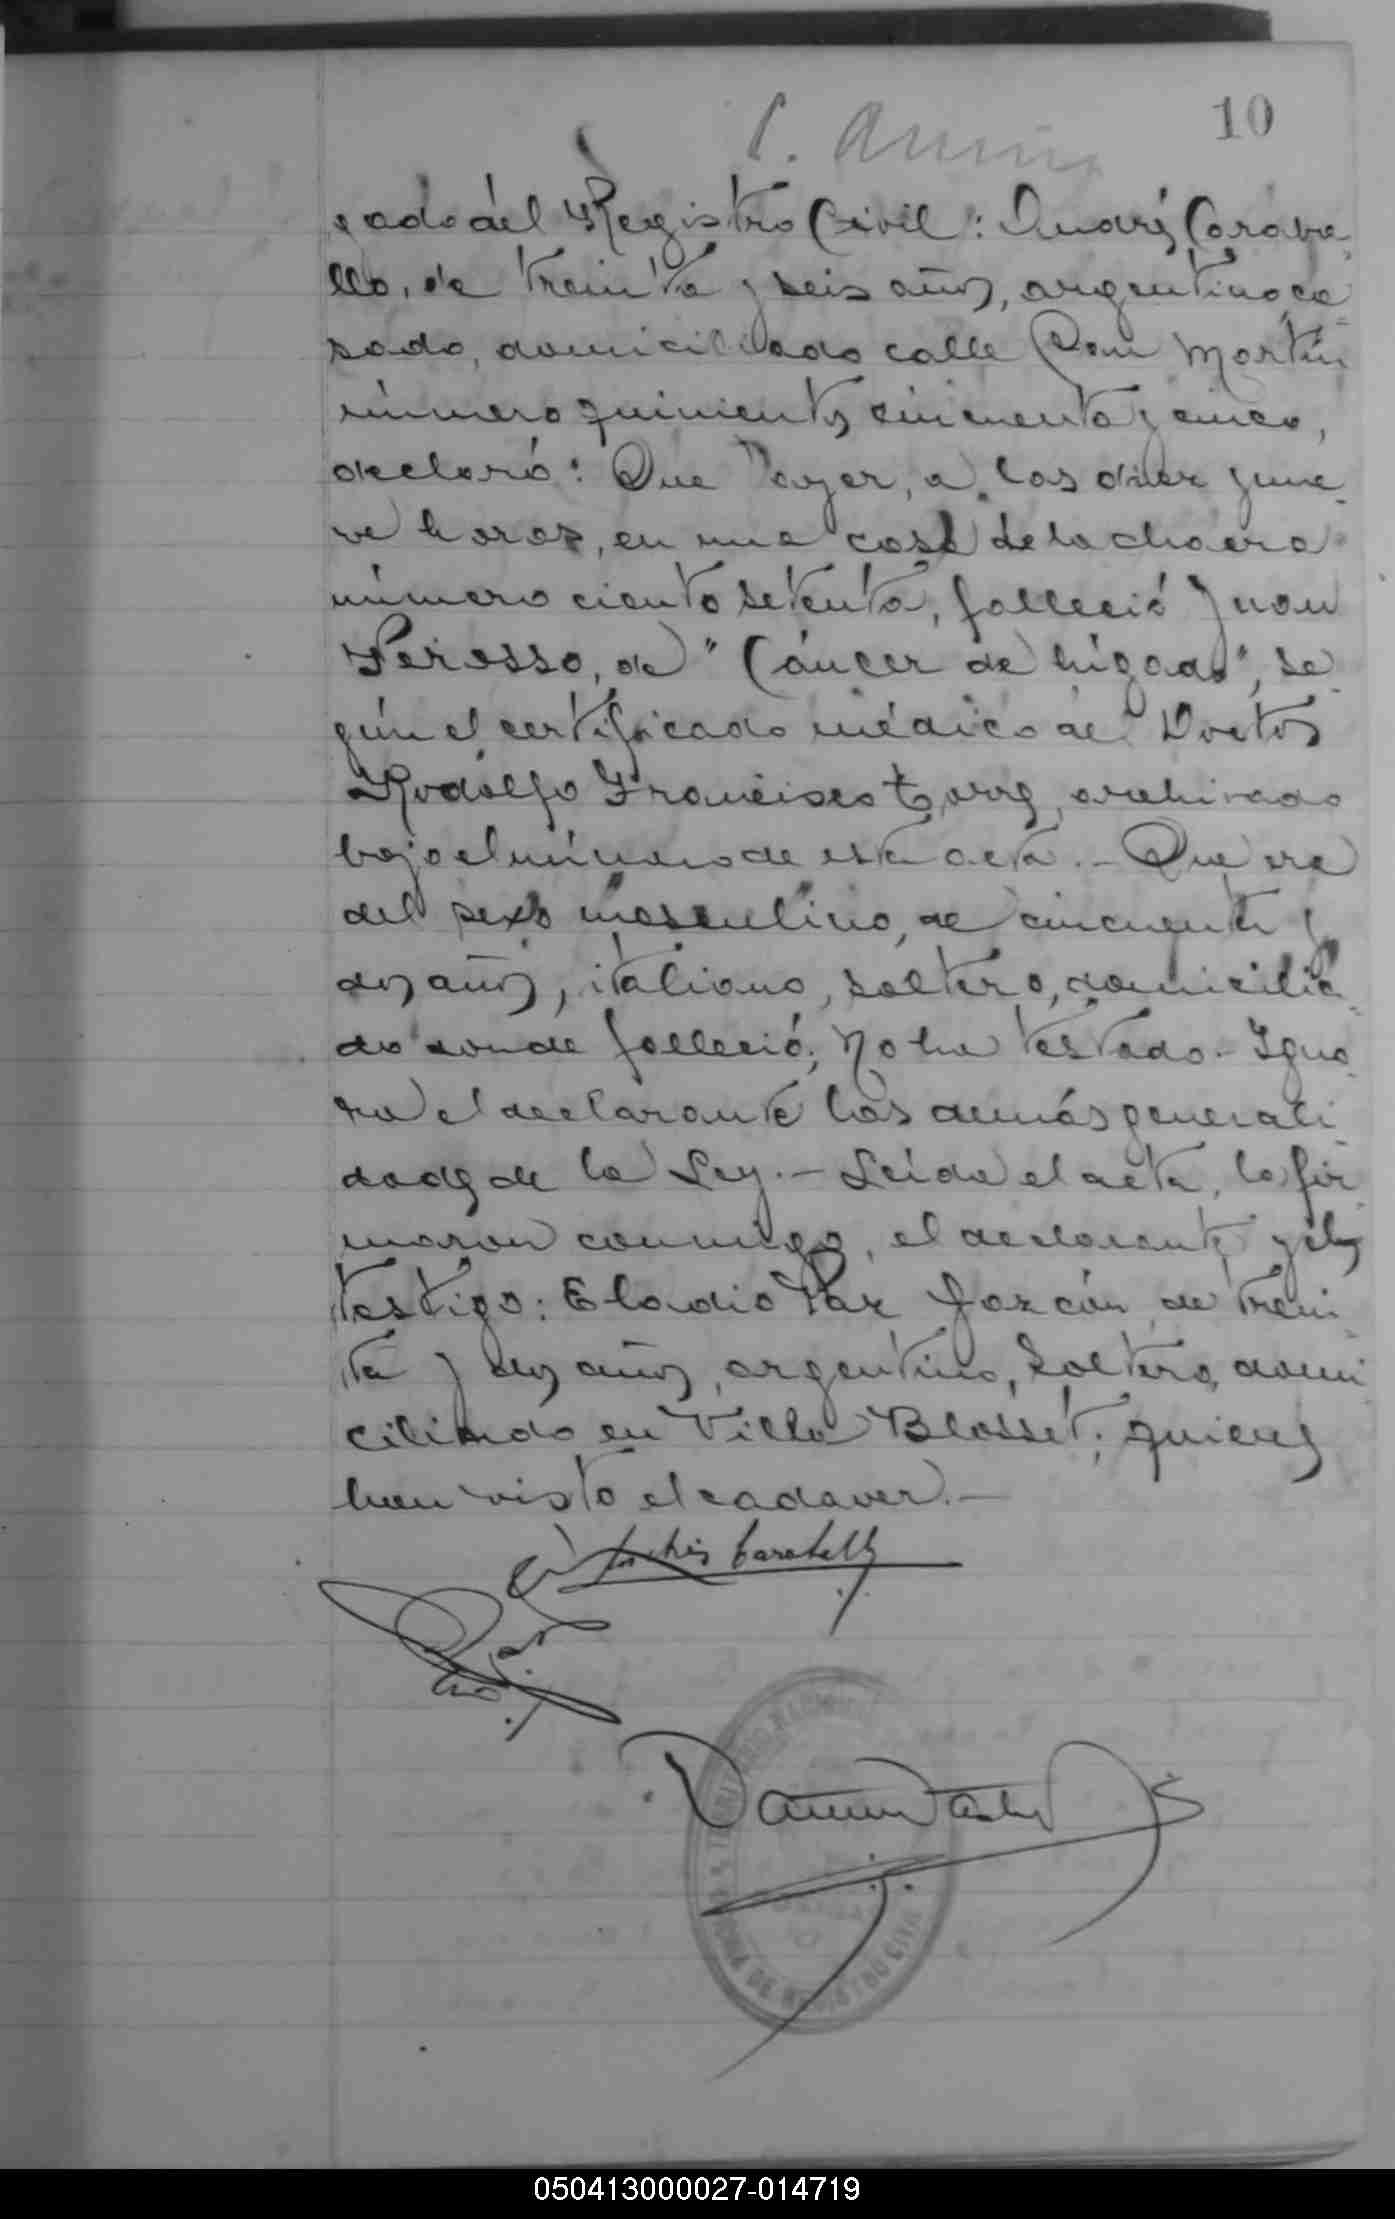 10
gado del Registro Civil: Andrés Caraba-
llo, de treinta y seis años, argentino, ca-
sado, domiciliado calle San Martín
número quinientos cincuenta y cinco,
declaró: Que ayer, a las diez y nue-
ve horas, en una casa de la chacra
número ciento setenta, falleció Juan
Perosso, de "Cáncer de hígado", se-
gún el certificado médico del Doctor
Rodolfo Francisco archivado
bajo el número de esta acta.- Que era
del sexo masculino, de cincuenta y
dos años, italiano, soltero, domicilia-
do donde falleció; No ha testado.- Igno-
ra el declarante las demás generali-
dades de la Ley.- Leída el acta, la fir-
maron conmigo, el declarante y el
testigo: Eladio Paz Garzón, de trein-
ta y dos años, argentino, soltero, domi-
ciliado en Villa Blosset; quienes
han visto el cadaver.-
DE REGISTRO CIVIL
050413000027-014719